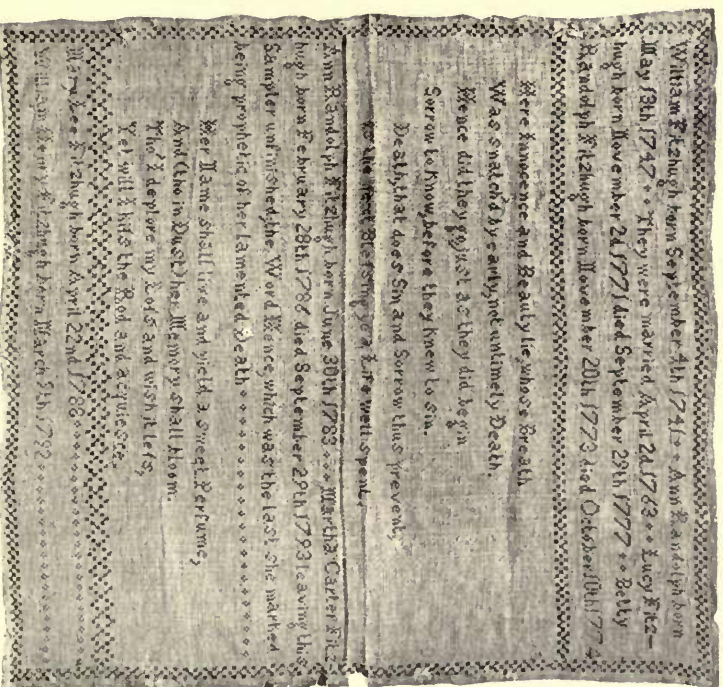 William Fitzhugh born September 4th 1741 Ann Randolph born
May 18th 1747 They were married April 2d 1763 Lucy Fitz-
hugh born November 2d 1771 died September 29th 1777 Betty
Randolph Fitzhugh born November 20th 1773 died October 10th 1774
Here Innocence and Beauty lie, whose Breath
Was snatch'd by early, not untimely Death.
Hence did they go, just as they did begin
Sorrow to know, before they knew to Sin.
Death, that does Sin and Sorrow thus prevent,
Is the next Blessing to a Life well spent.
Ann Randolph Fitzhugh born June 30th 1783 Martha Carter Fitz
hugh born February 28th 1786 died September 29th 1793 leaving this
Sampler unfinished, the Word Hence, which was the last she marked
being prophetic of her lamented Death
Her Name shall live and yield a sweet Perfume,
And (tho in Dust) her Memory shall bloom.
Tho' I deplore my Loss and wish it less,
Yet will I kiss the Rod and acquiesce.
Mary Lee Fitzhugh born April 22nd 1788
William Henry Fitzhugh born March 9th 1792